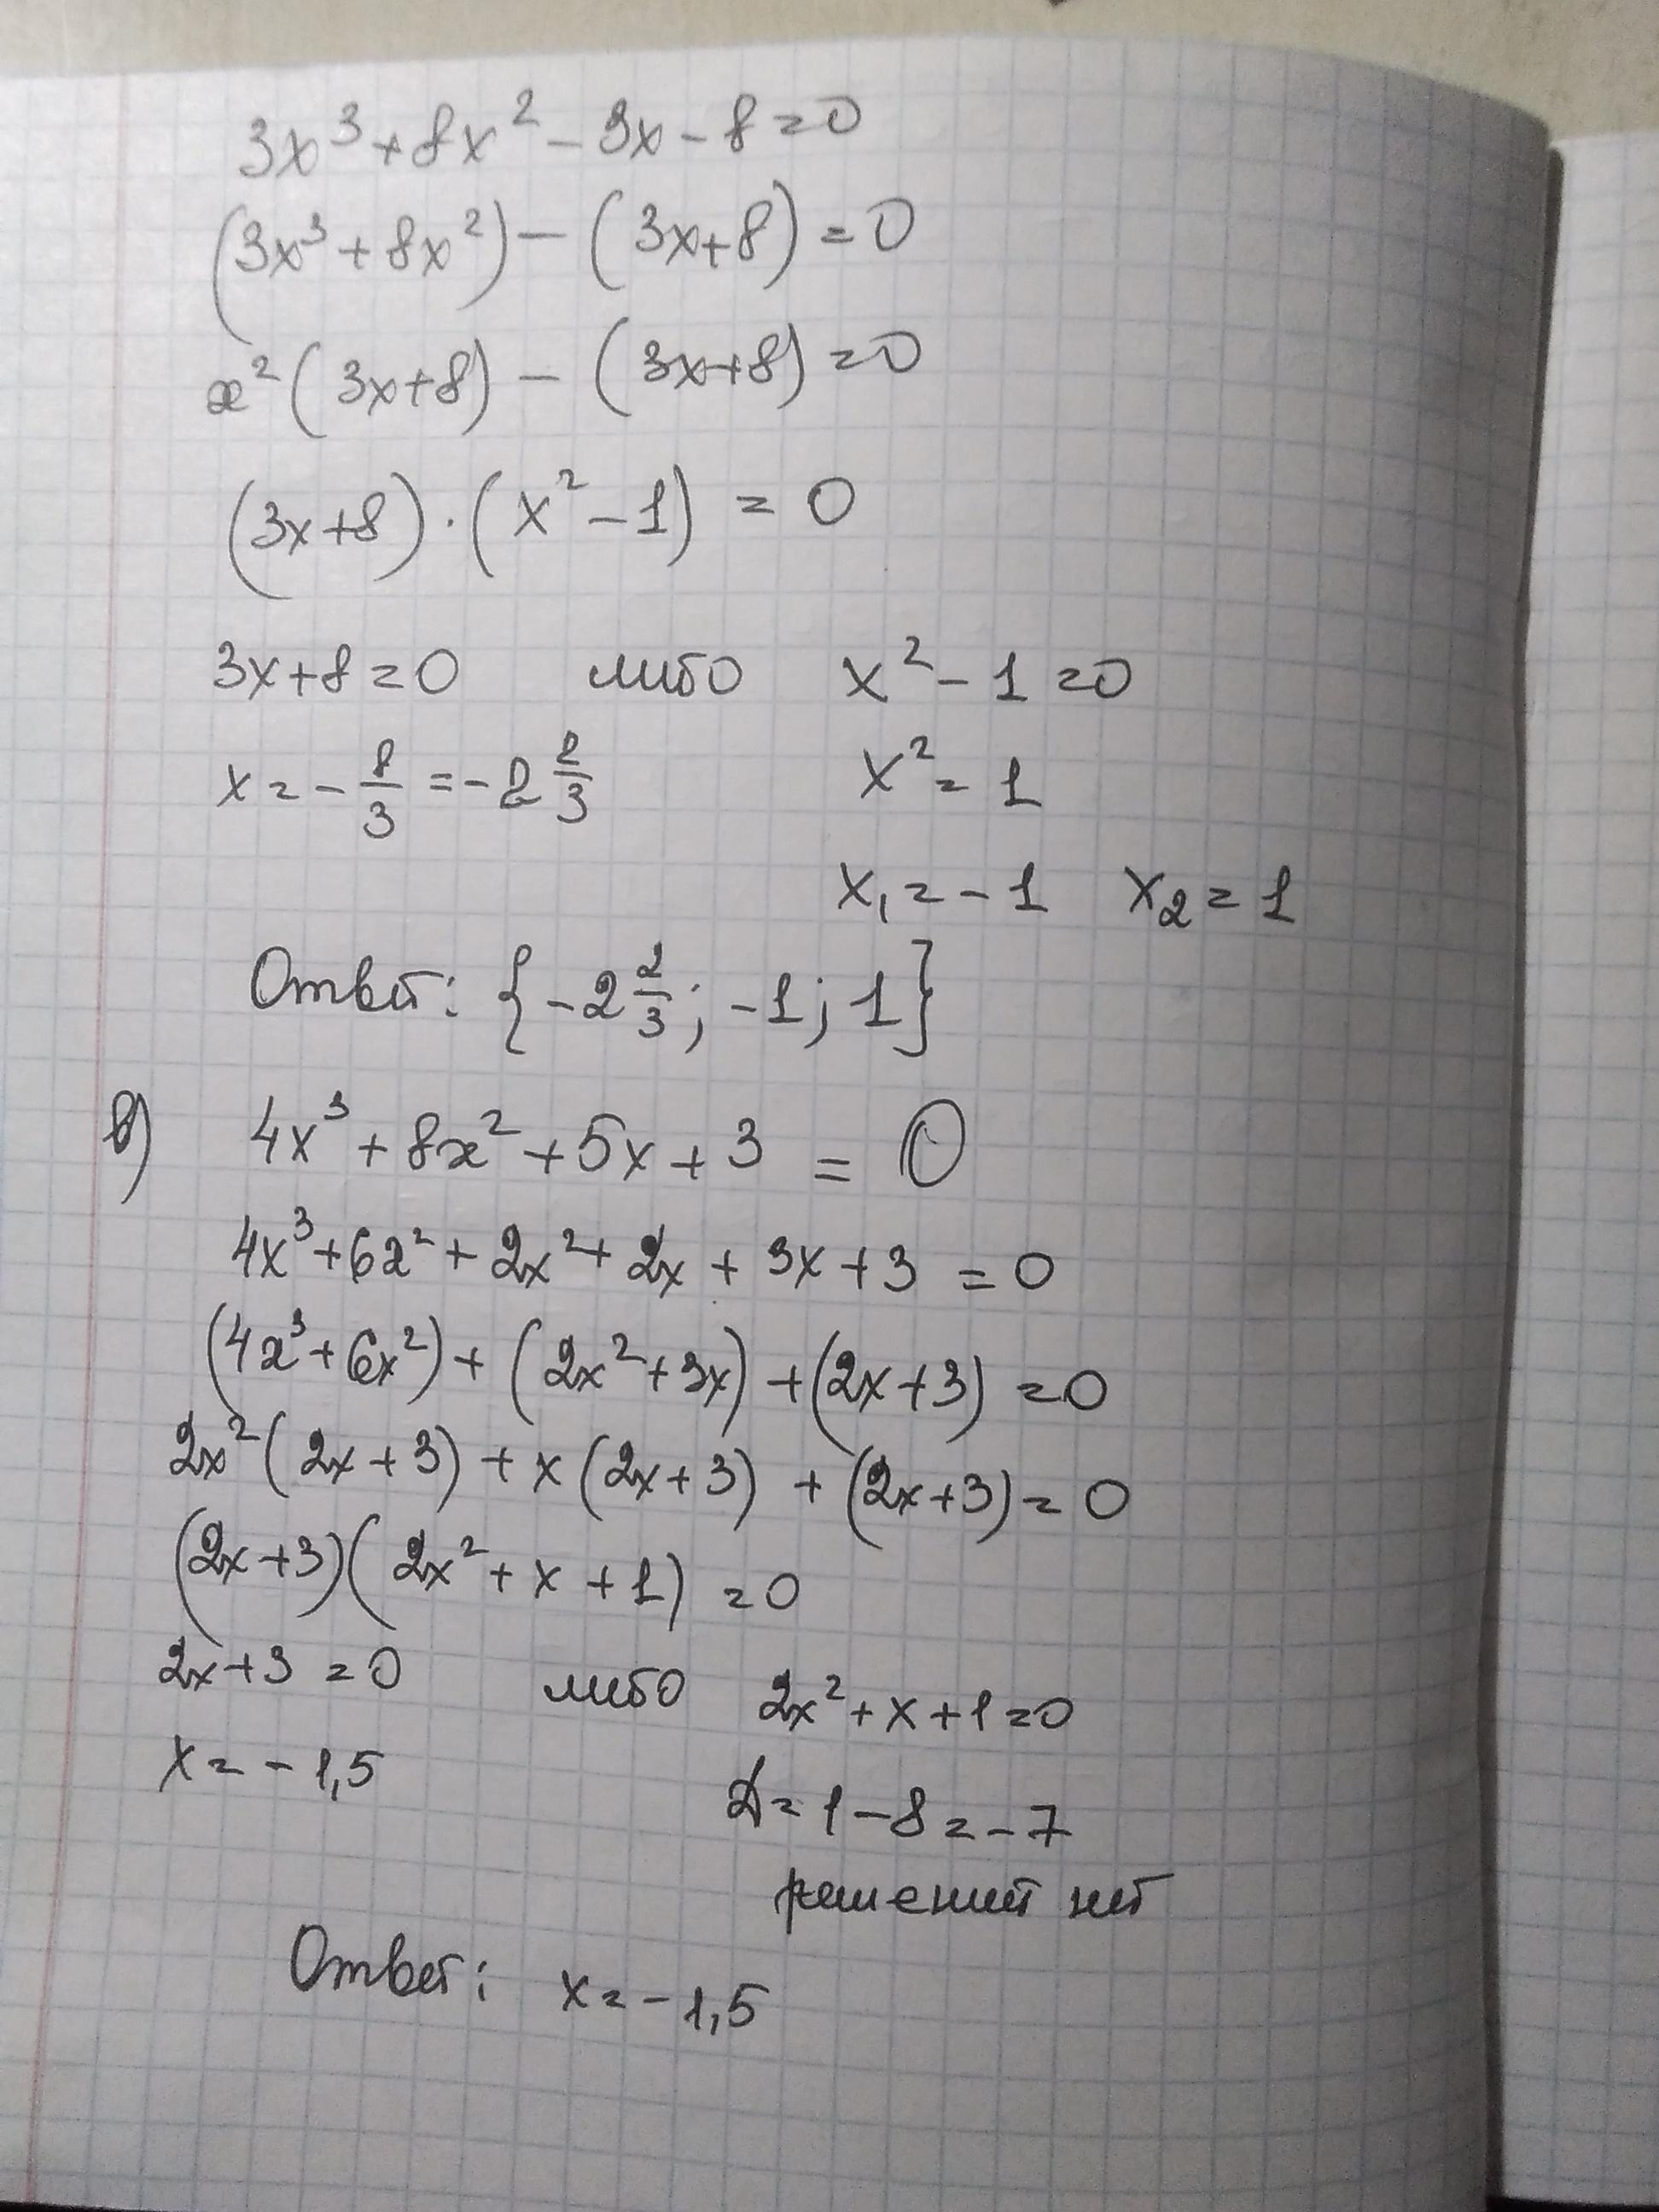 3x³+8x²-3x-8=0
(3x³+8x²)-(3x+8)=0
x²(3x+8)-(3x+8)=0
(3x+8)·(x²-1)=0
3x+8=0 либо x²-1=0
x=-8/3=-2 2/3 x²=1
x₁=-1 x₂=1
Ответ: {-2 2/3; -1; 1}
в) 4x³+8x²+5x+3=0
4x³+6x²+2x²+2x+3x+3=0
(4x³+6x²)+(2x²+3x)+(2x+3)=0
2x²(2x+3)+x(2x+3)+(2x+3)=0
(2x+3)(2x²+x+1)=0
2x+3=0 либо 2x²+x+1=0
x=-1,5 D=1-8=-7
решений нет
Ответ: x=-1,5